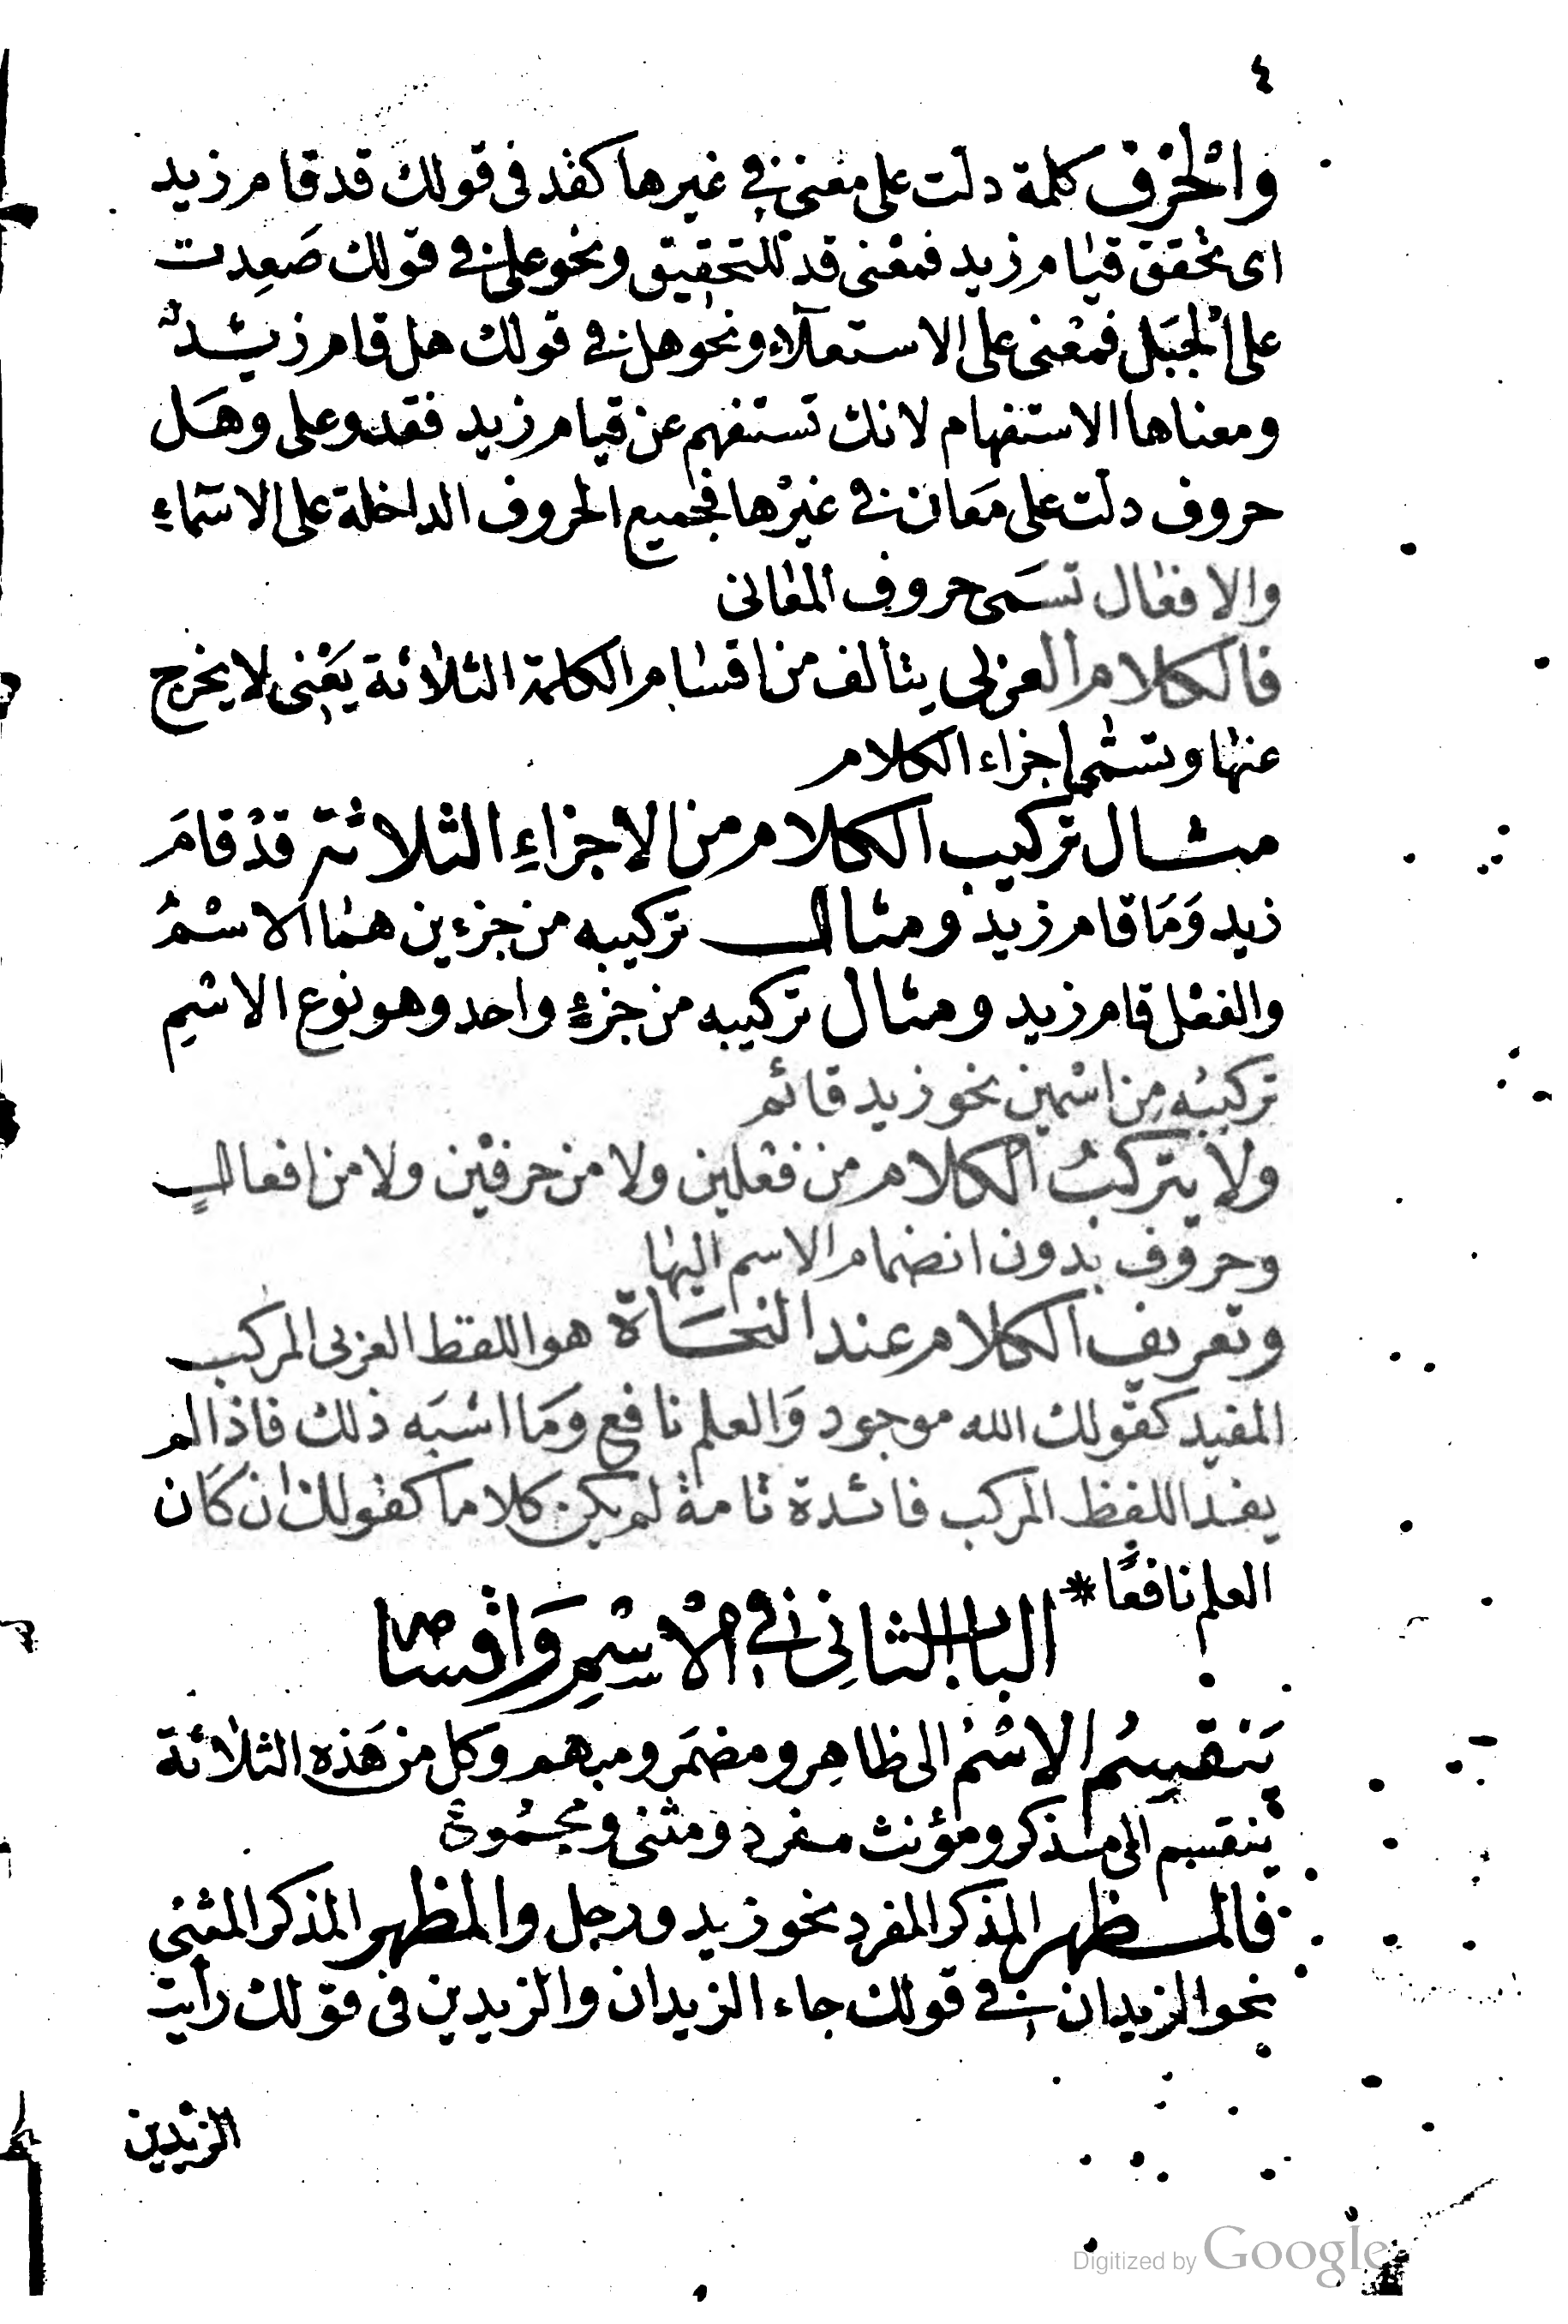 ٤
والْحَرْف كلمة دلّت على معنى فى غيرها كقد فى قولك قد قام زيد
اى تحقق قيام زيد فمعنى قد للتحقيق ونحو على فى قولك صَعِدت
على الْجَبَل فمعْنى على الاستعلاء ونحو هل فى قولك هل قام زيدٌ
ومعناها الاستفهام لانك تستفهم عن قيام زيد فقد وعلى وهَل
حروف دلّت على مَعان فى غيْرها فجميع الحروف الداخلة على الاسماءِ
والافعال تسَمى حروف المعانى
فالكلام العربى يتألف من اقسام الكلمة الثلاثة يَعْنى لا يخرج
عنها وتسمى اجزاء الكلام
مثال تركيب الكلام من الاجزاءِ الثلاثة قدْ قامَ
زيد وَمَا قام زيد ومثال تركيبه من جزءين هما الاسْمُ
والفعْل قام زيد ومثال تركيبه من جزءٍ واحد وهو نوع الاسْمِ
تركيبُه مِن اسْمين نحو زيد قائم
ولا يتركبُ الكلام من فعْلين ولا من حرفيْن ولا من افعالٍ
وحروف بدون انضمام الاسم اليها
وتعريف الكلام عند النحَاة هو اللفظ العربى المركب
المفيد كقولك الله موجود وَالعلم نافع وَمَا اشبَه ذلك فاذا لم
يفد اللفظ المركب فائدة تامة لم يكن كلاما كقولك ان كَان
العلم نافعًا *
الباب الثانى فى الْاسْمِ وَاقْسامه
يَنقسِمُ الاسْمُ الى ظاهِر ومضمَر ومبهم وكل من هَذه الثلاثة
ينقسم الى مذكر ومؤنث مفرد ومثنى ومجمُوع
فالمظهر المذكر المفرد نحو زيد ورجل والمظهر المذكر المثنى
نحو الزيدان فى قولك جاء الزيدان والزيدين فى قولك رأيت
الزيْدين
Digitized by Google